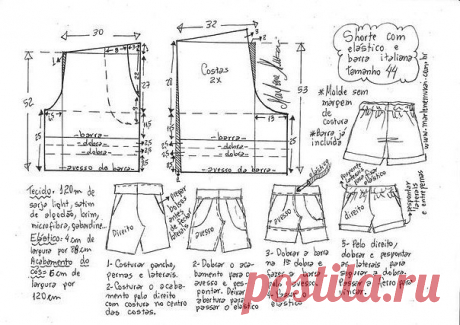 30
32
Shorte com
elástico e
barra italiana
tamanho 44
www.marlenemukai.com.br
* Molde sem
margem
de costura
* Barra já
incluída
52
53
Costas
2x
Marlene Mukai
28
22
27
25
25
13
barra
dobra
dobra
avesso da barra
barra
dobra
dobra
avesso da barra
Tecido: 120cm de
sarja light, cetim
de algodão, brim,
microfibra, gabardine.
Elástico: 4cm de
largura por 88cm
Acabamento do
cós: 6cm de
largura por
120cm
direito
pregar
bolsos
antes
de fechar
laterais
avesso
avesso
direito
pespontar
laterais
e entrepernas
1- Costurar gancho,
pernas e laterais.
2- Costurar o acabamento
pelo direito
com costura no centro
das costas.
2- Dobrar o acabamento
para o
avesso e pespontar.
Deixar
abertura para
passar o elástico
3- Dobrar a barra
e
fazer a barra
4- Passar
elástico
5- Pelo direito,
dobrar e pespontar
as laterais para
segurar a dobra.
Passar a ferro para
vincar.
postila.ru